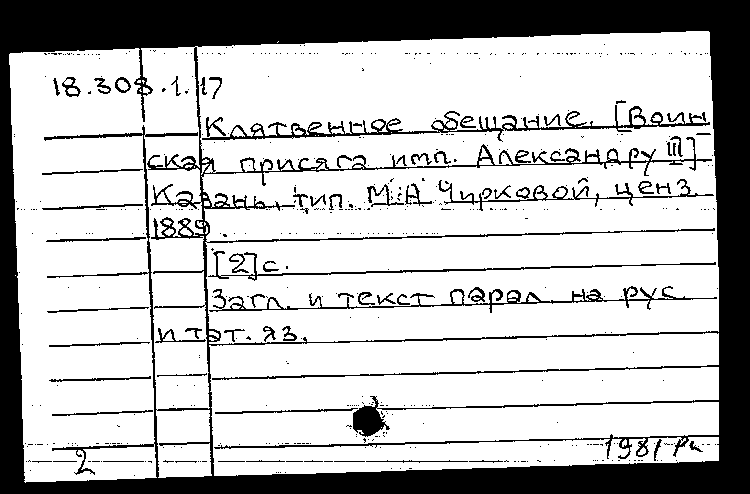 18.308.1.17
Клятвенное обещание. [Воин
ская присяга имп. Александру III]
Казань, тип. М.А Чирковой, ценз.
1889.
[2]с.
Загл. и текст парал. на рус.
и тат. яз.
2
1981